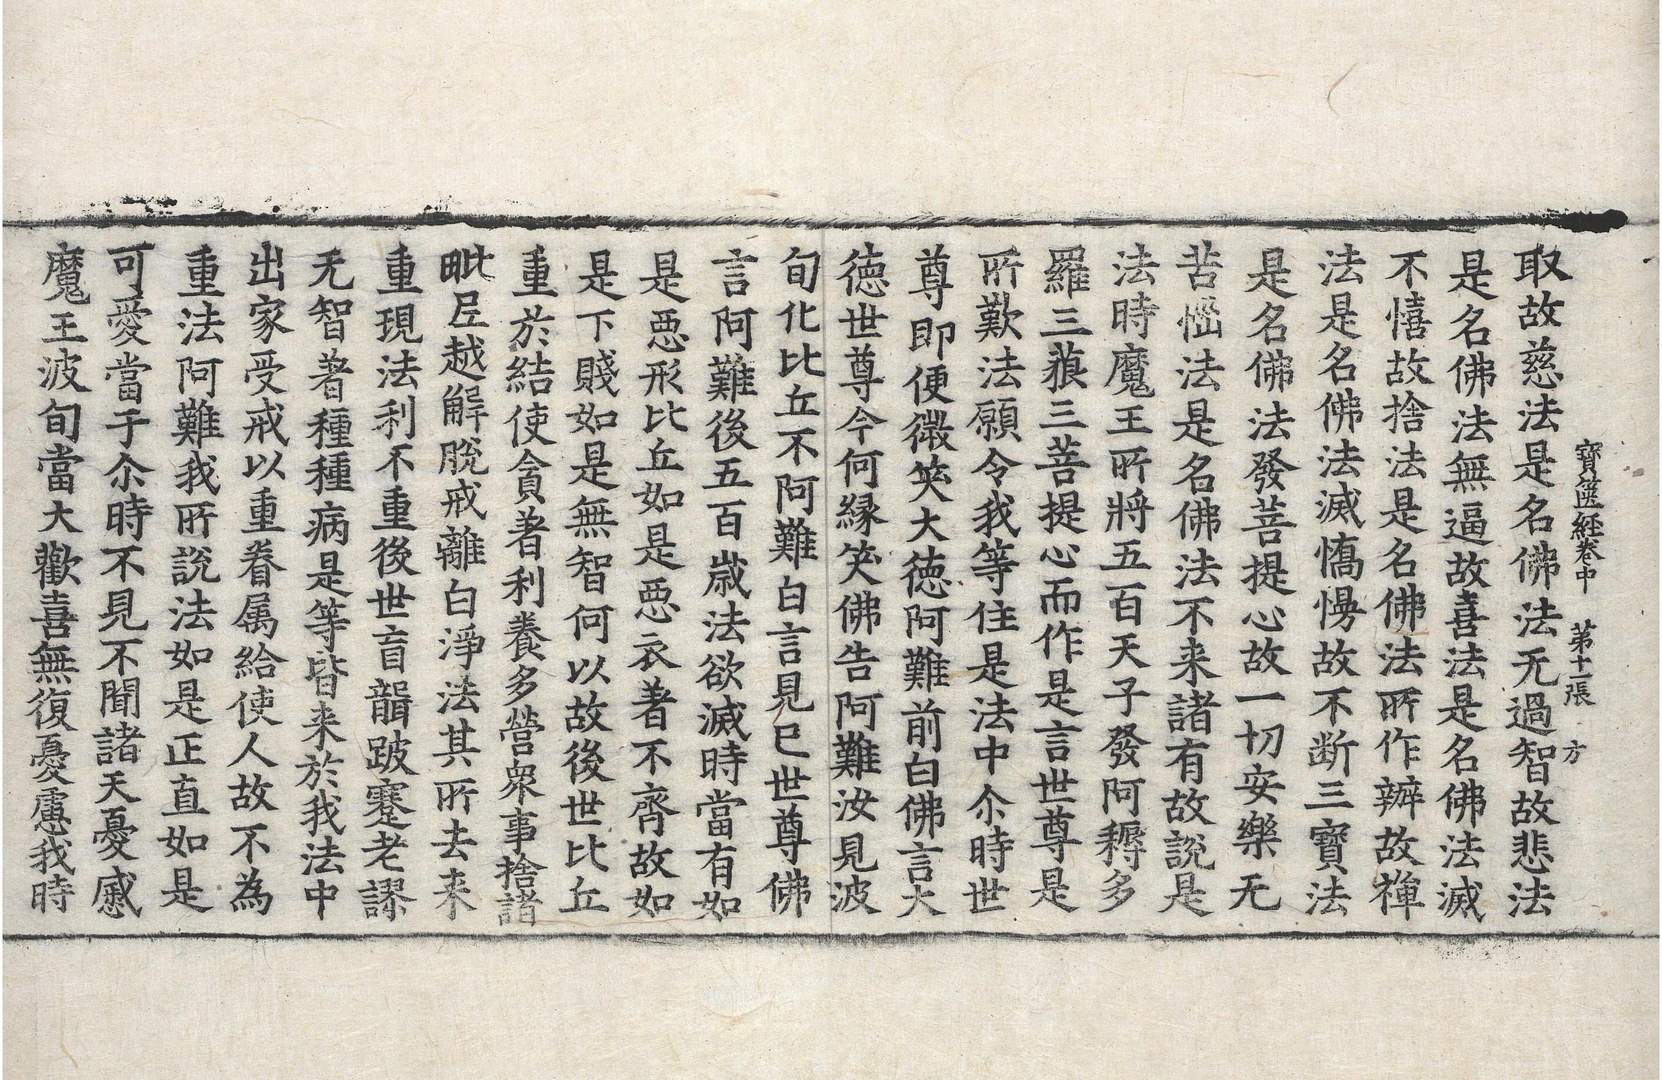 寶篋経卷中　第十一張　方
取故慈法是名佛法无過智故悲法
是名佛法無逼故喜法是名佛法滅
不憘故捨法是名佛法所作辦故禪
法是名佛法滅憍慢故不断三寶法
是名佛法發菩提心故一切安樂无
苦惱法是名佛法不来諸有故說是
法時魔王所將五百天子發阿耨多
羅三藐三菩提心而作是言世尊是
所歎法願令我等住是法中尒時世
尊即便微笑大德阿難前白佛言大
德世尊今何緣笑佛告阿難汝見波
旬化比丘不阿難白言見已世尊佛
言阿難後五百歲法欲滅時當有如
是惡形比丘如是惡衣著不齊故如
是下賤如是無智何以故後世比丘
重於結使貪著利養多營衆事捨諸
毗尼越解脫戒離白淨法其所去来
重現法利不重後世盲聾跛蹇老謬
无智著種種病是等皆来於我法中
出家受戒以重眷属給使人故不為
重法阿難我所說法如是正直如是
可愛當于尒時不見不聞諸天憂慼
魔王波旬當大歡喜無復憂慮我時